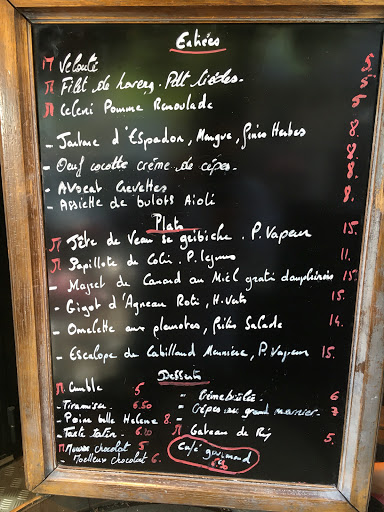 Entrées
Π Velouté 5
Π Filet de hareng. Pdt tièdes. 5
Π Celeri Pomme Remoulade 5
- Tartare d'Espadon, Mangue, fines Herbes 8.
- Oeuf cocotte crème de cèpes. 8.
- Avocat Crevettes 8.
- Assiette de bulots Aioli 8.
Plats
Π Tête de Veau sce gribiche. P. Vapeur 15.
Π Papillote de Colin. P. legumes 11.
- Magret de Canard au Miel gratin dauphinois 15.
- Gigot d'Agneau Roti, H. Verts 15.
- Omelette aux pleurotes, frites Salade 14.
- Escalope de Cabillaud Meuniere, P. Vapeur 15.
Desserts
Π Crumble 5
- Tiramisu 6.50
- Poire belle Helene 8.
- Tarte tatin 6.20
Π Mousse chocolat 5
- Moelleux chocolat 6.
- Crème brulée 6
- Crêpes au grand marnier. 7
Π Gateau de Riz 5.
Café gourmand